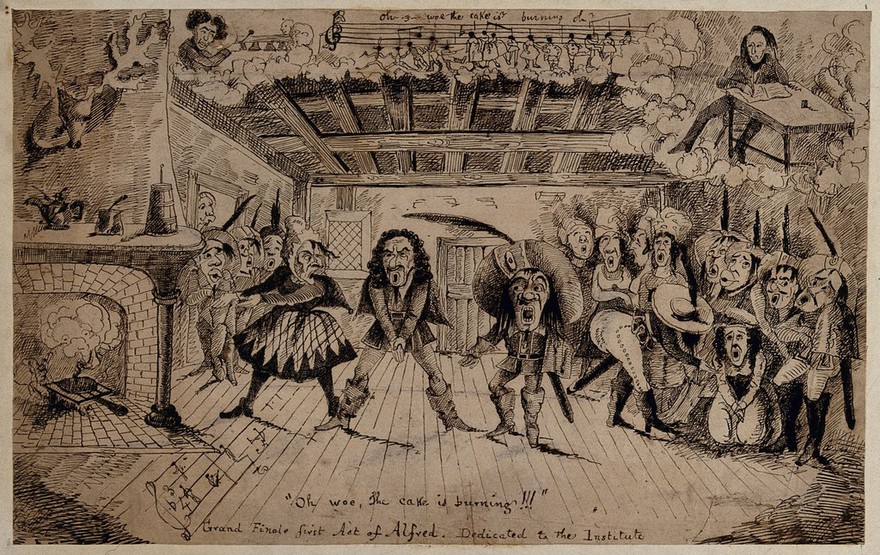 oh woe the cake is burning oh
"Oh woe, the cake is burning!!!"
Grand Finale first Act of Alfred. Dedicated to the Institute